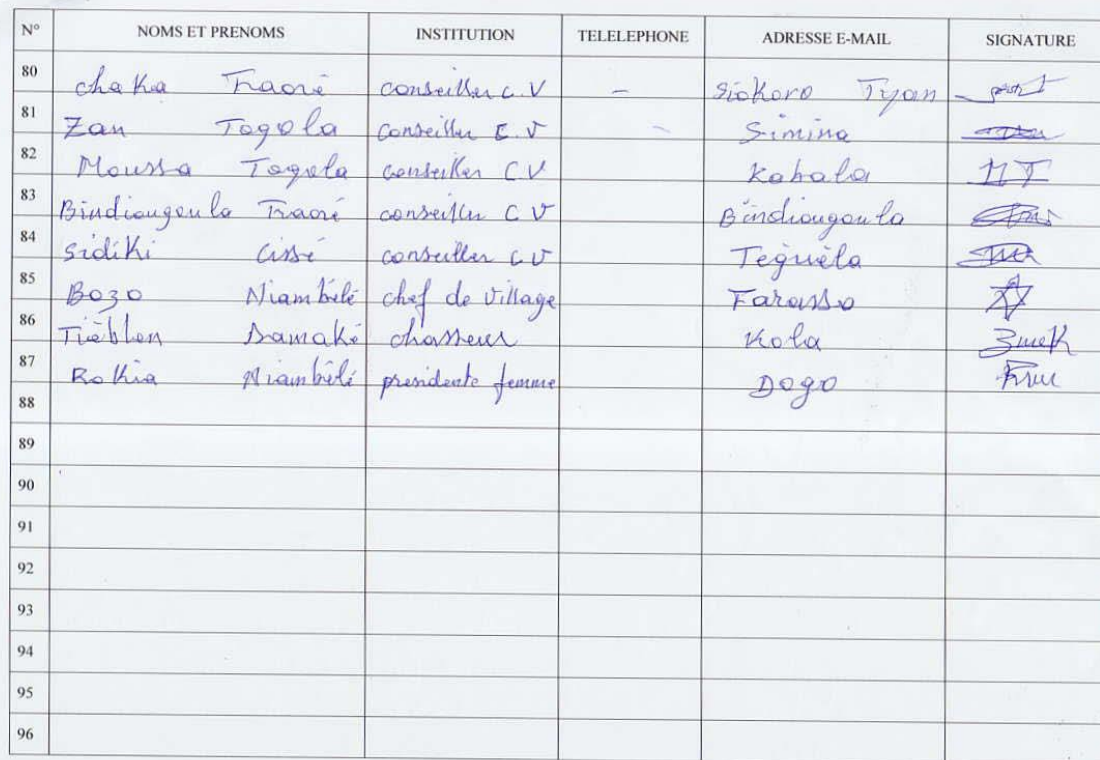 N° NOMS ET PRENOMS INSTITUTION TELELEPHONE ADRESSE E-MAIL SIGNATURE
80 chaka Traoré conseiller C.V - Siokoro Tyan
81 Zan Togola conseiller C.V - Simina
82 Moussa Togola conseiller C V Kabala MT
83 Bindiougoula Traoré conseiller C V Bindiougoula
84 Sidiki Cissé conseiller C V Téguéla
85 Bozo Niambélé chef de village Farasso
86 Tièblen Samaké chasseur Kola
87 Rokia Niambélé presidente femme Dogo
88
89
90
91
92
93
94
95
96